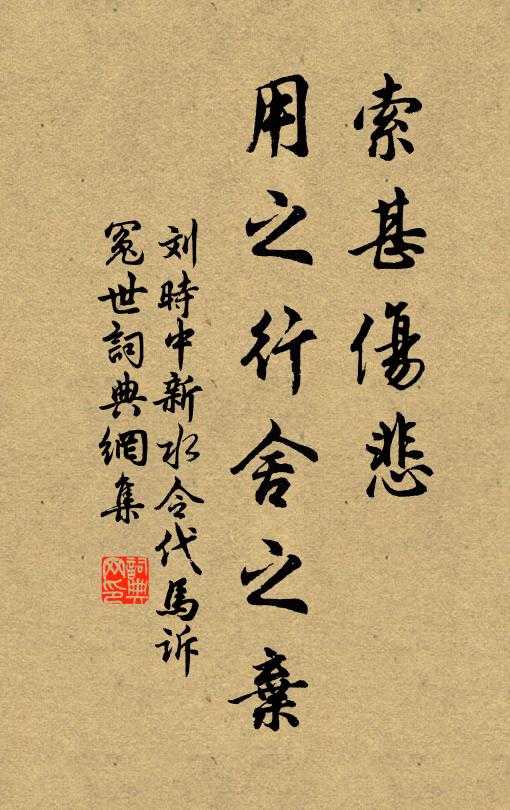 索甚傷悲
用之行舍之棄
刘時中新水令代馬诉
冤世詞典網集
詞典
网印